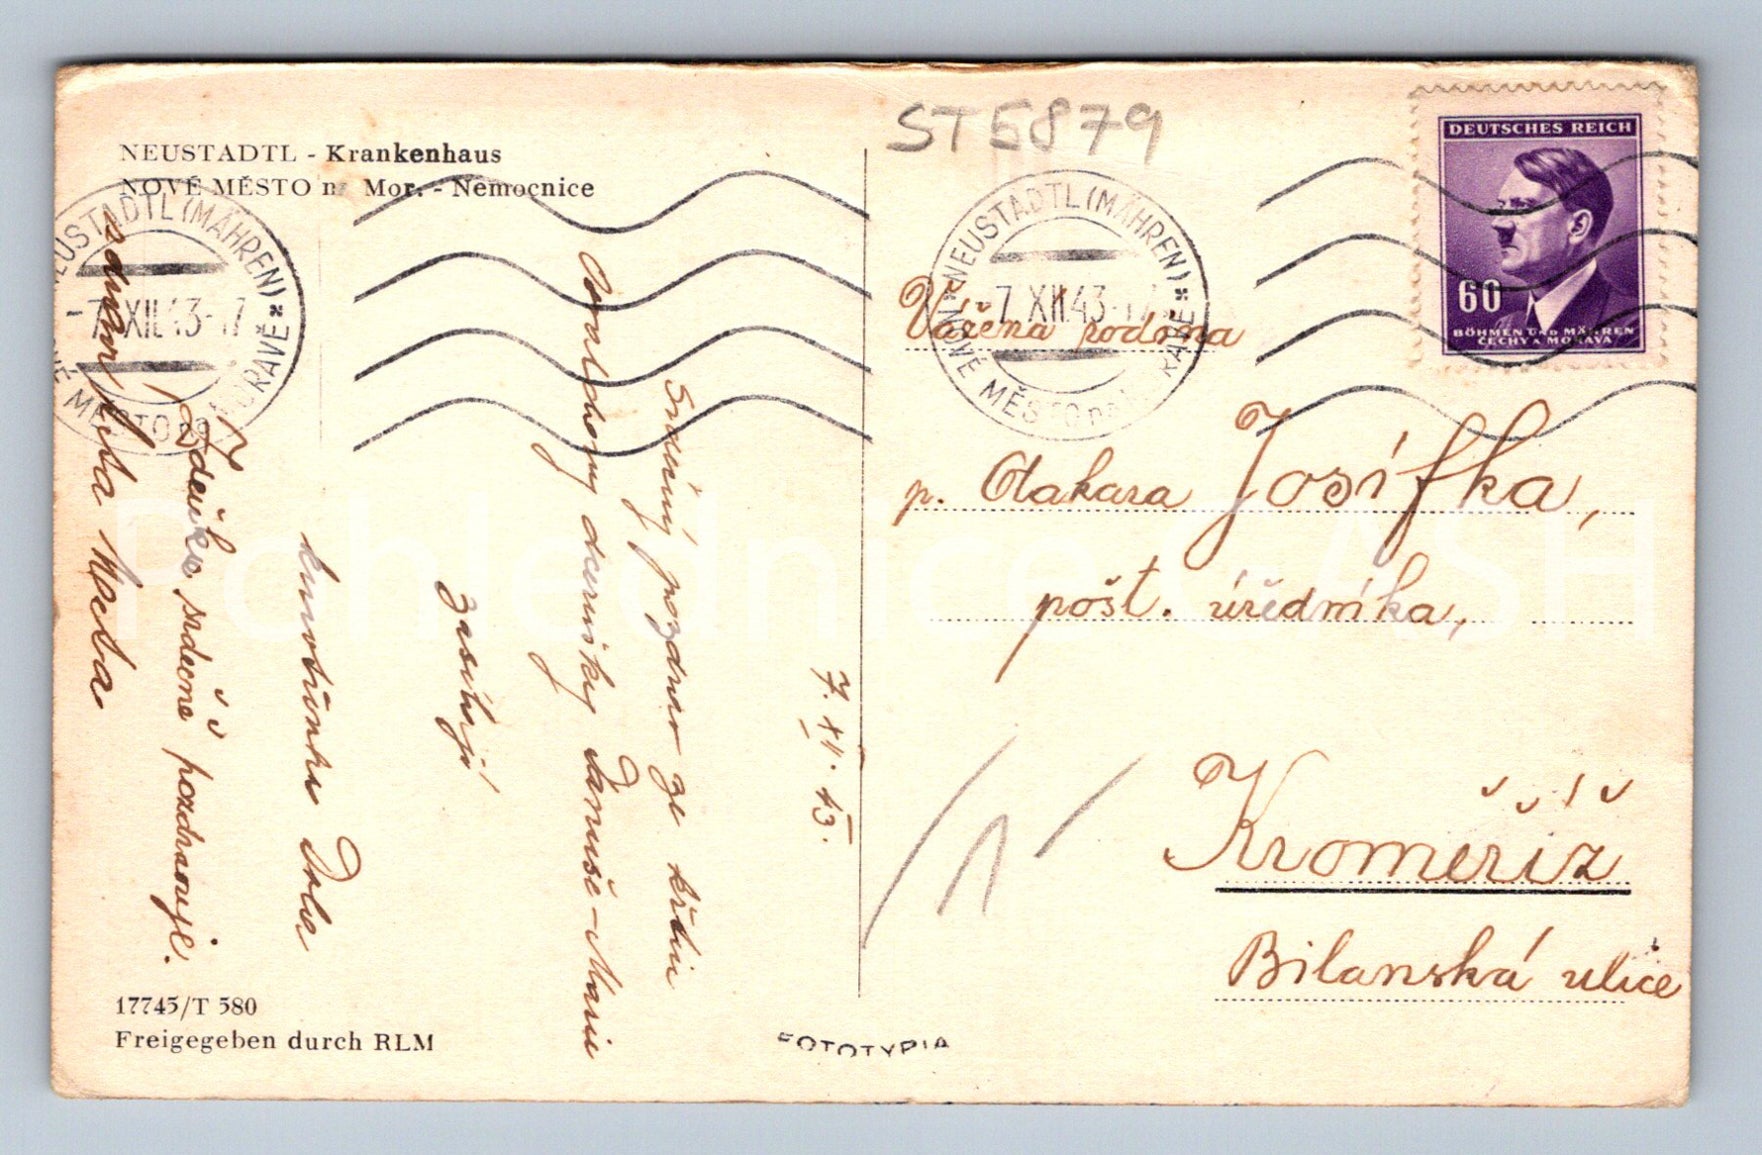 NEUSTADTL - Krankenhaus
NOVÉ MĚSTO n Mor. - Nemocnice
NEUSTADTL (MÄHREN)
-7.XII.43-17
NOVÉ MĚSTO NA MORAVĚ
ST5879
NEUSTADTL (MÄHREN)
-7.XII.43-17
NOVÉ MĚSTO NA MORAVĚ
DEUTSCHES REICH
60
BÖHMEN UND MÄHREN
ČECHY A MORAVA
Vážená rodina
p. Otakara Josífka,
pošt. úředníka,
Kroměříž
Bilanská ulice
7. XII. 43.
Srdečný pozdrav ze křtin
dcerušky Danuše-Marie
zasílají
Zdeňka, srdečně pozdravuje.
17745/T 580
Freigegeben durch RLM
FOTOTYPIA
Pohlednice SASH